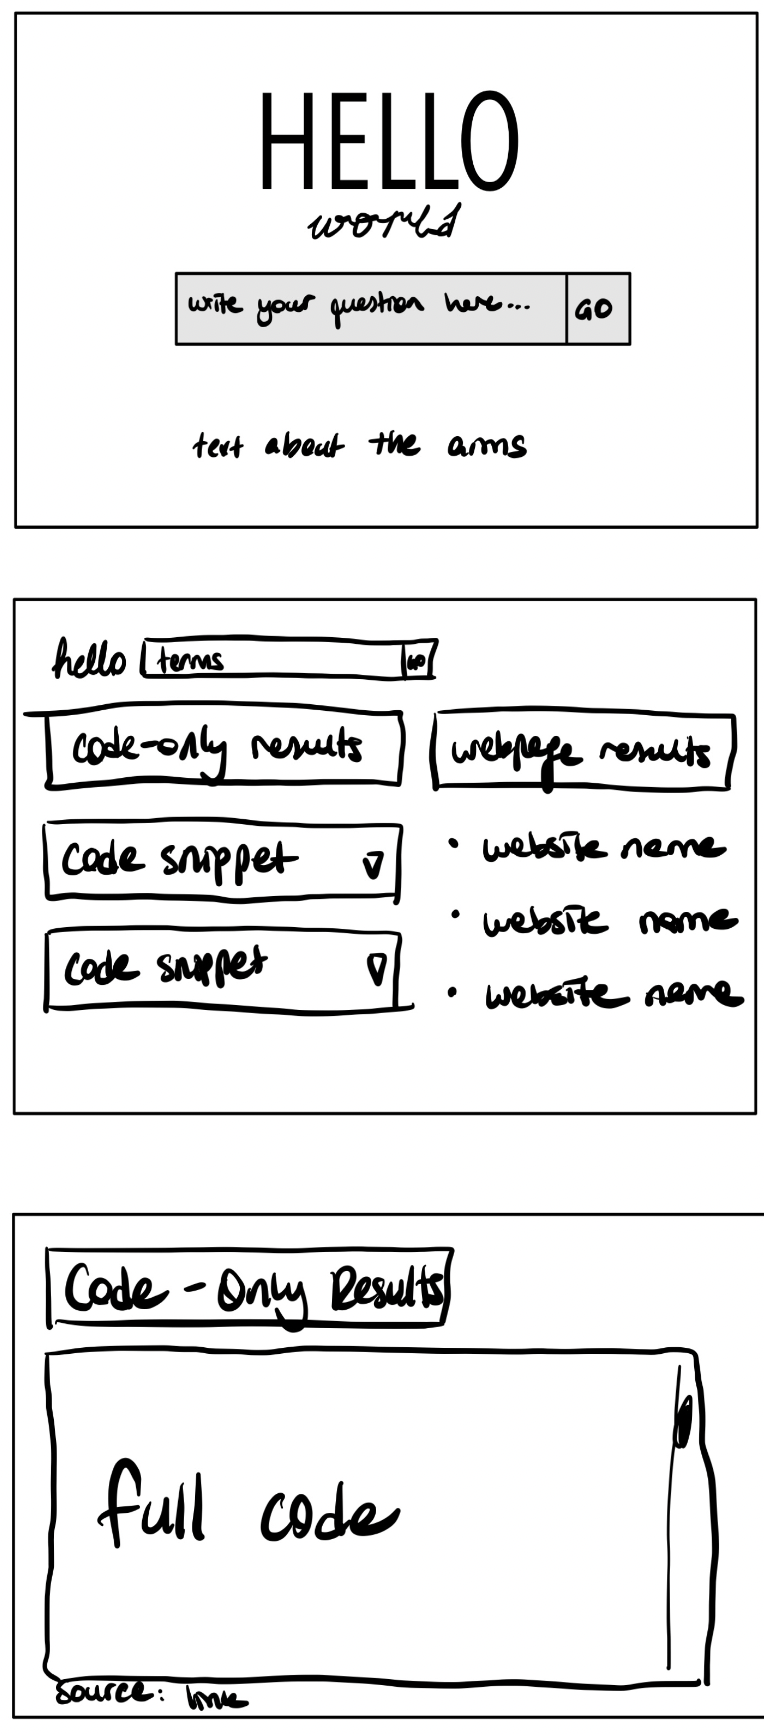 HELLO
world
write your question here... GO
text about the aims
hello terms GO
code-only results
webpage results
code snippet
code snippet
• website name
• website name
• website name
Code - Only Results
full code
source: link